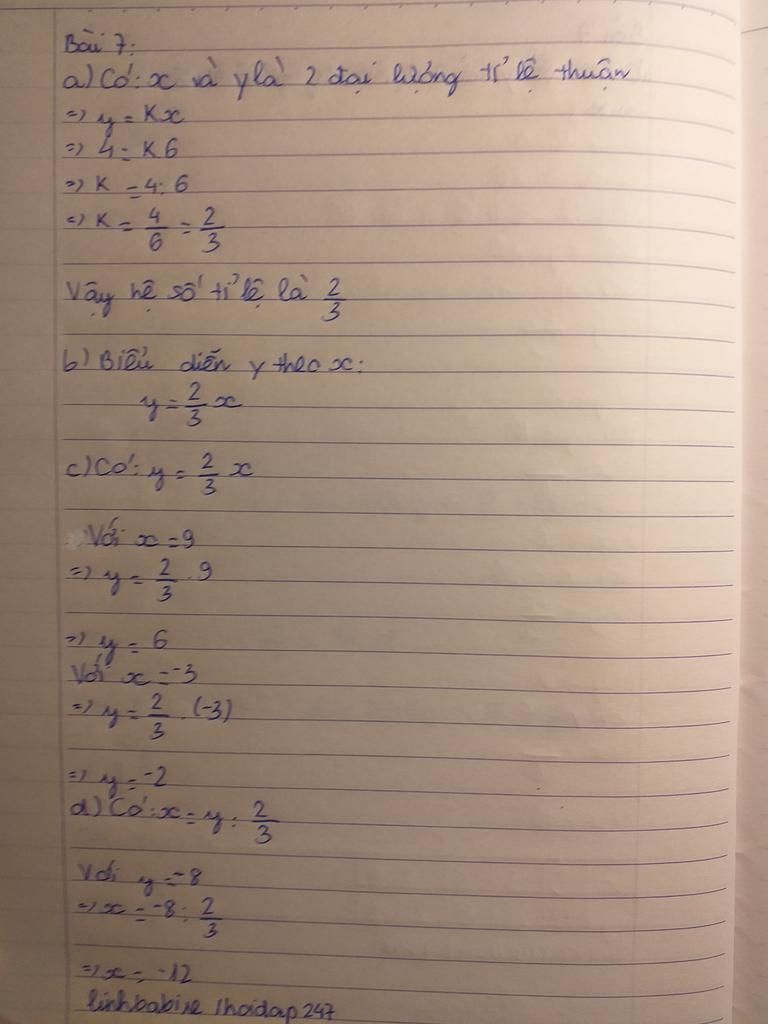 Bài 7:
a) Có: x và y là 2 đại lượng tỉ lệ thuận
=> y = Kx
=> 4 = K 6
=> K = 4 : 6
=> K = 4/6 = 2/3
Vậy hệ số tỉ lệ là 2/3
b) Biểu diễn y theo x:
y = 2/3 x
c) Có: y = 2/3 x
Với x = 9
=> y = 2/3 . 9
=> y = 6
Với x = -3
=> y = 2/3 . (-3)
=> y = -2
d) Có: x = y : 2/3
Với y = -8
=> x = -8 : 2/3
=> x = -12
linhbabine 1hoidap247